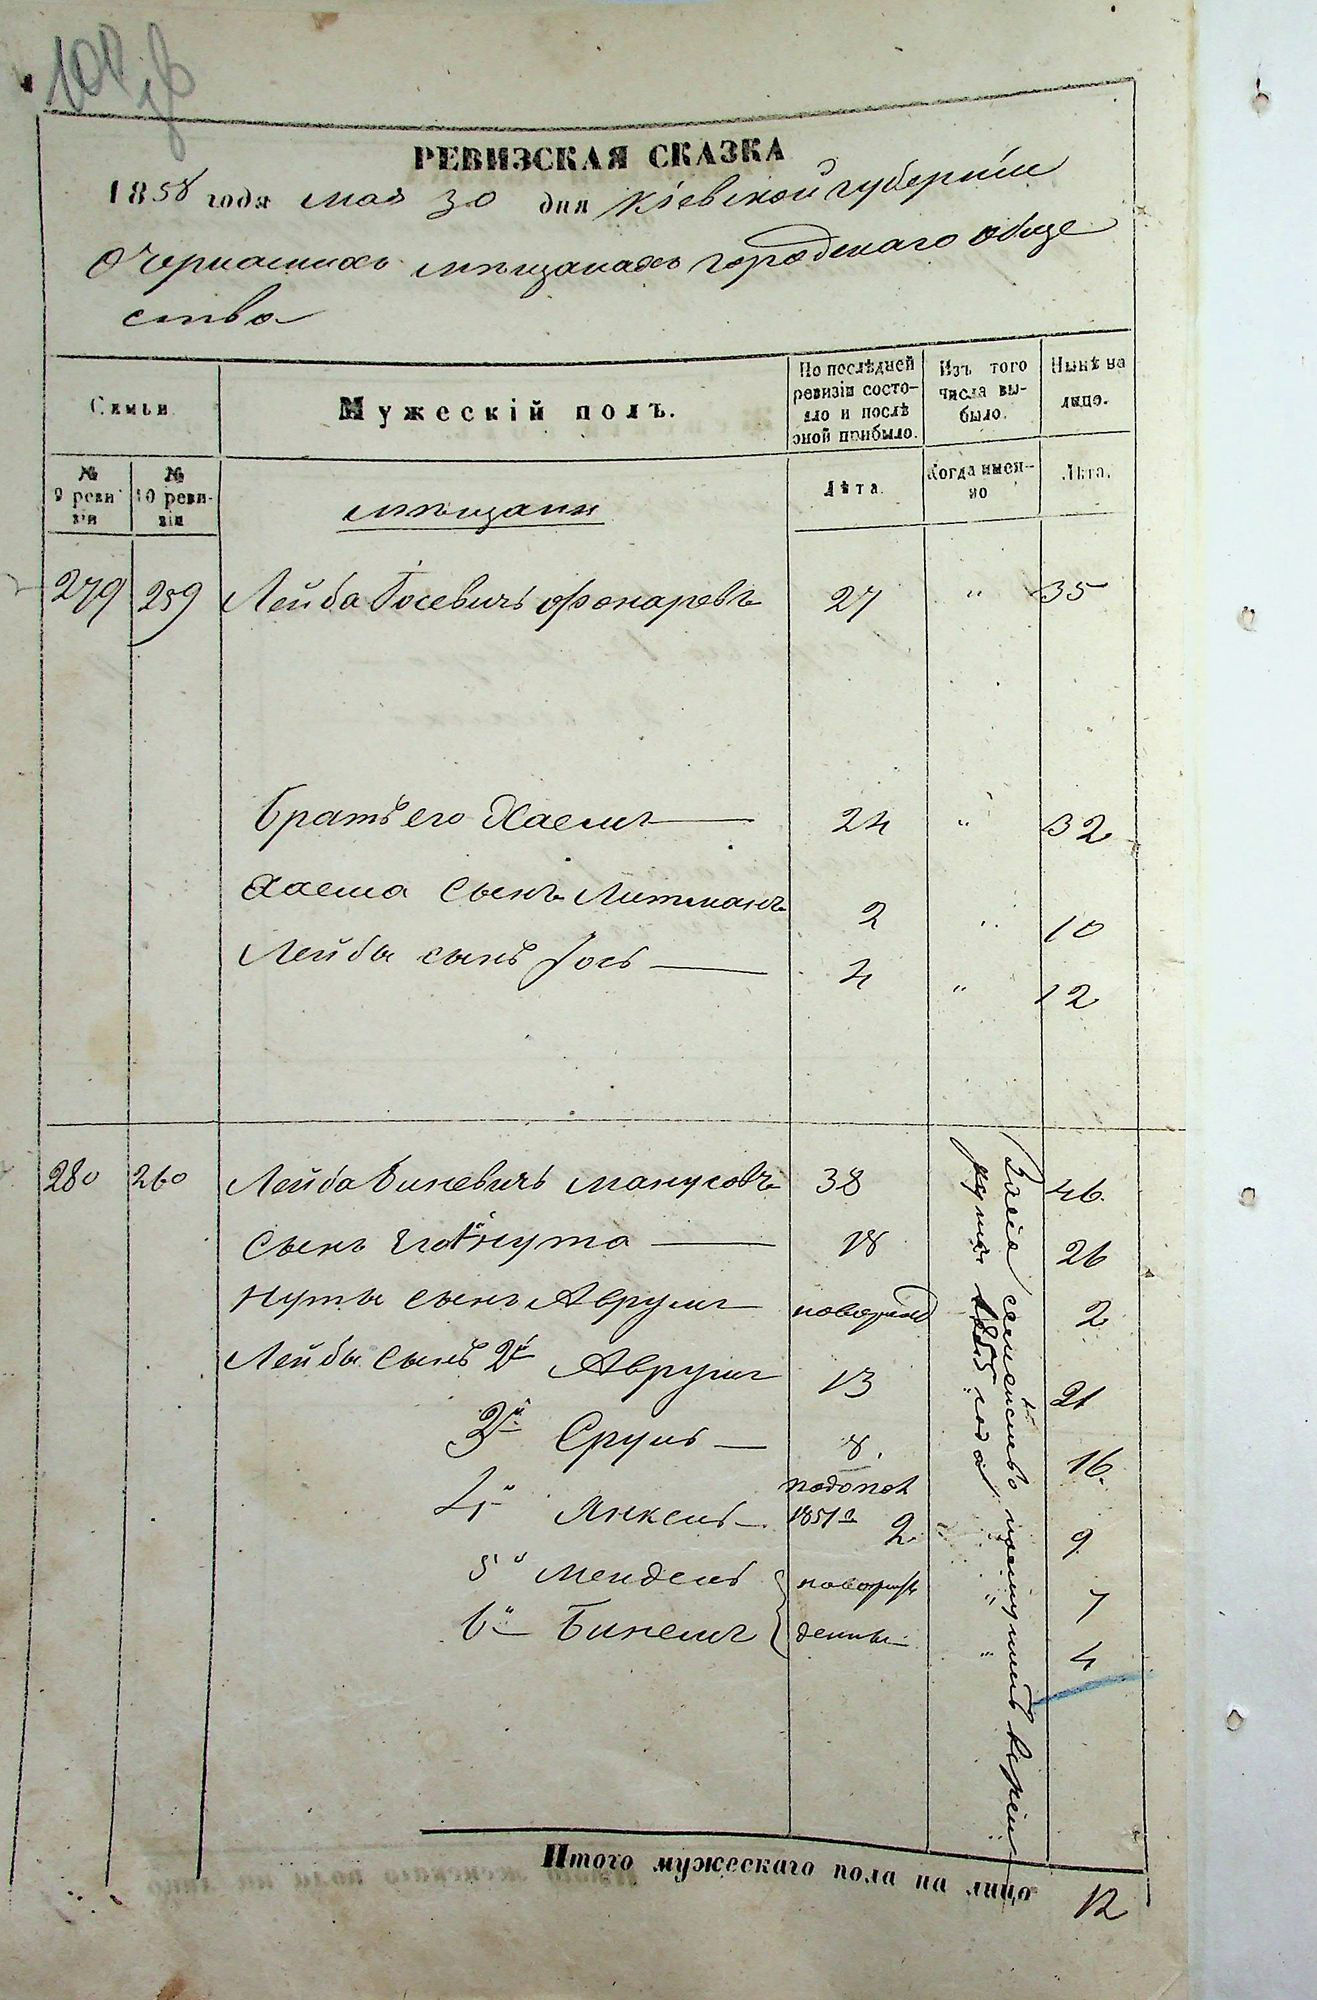 108
РЕВИЗСКАЯ СКАЗКА
1858 года мая 30 дня Кіевской губерніи
О Черкаскихъ мѣщанахъ городскаго обще
ства
Семьи.
Мужескій полъ.
По послѣдней ревизіи состояло и послѣ оной прибыло.
Изъ того числа выбыло.
Нынѣ на лицо.
№ 9 ревизіи
№ 10 ревизіи
мѣщани
Лѣта.
Когда именно
Лѣта.
279 259 Лейба Іосевичъ Фонаревъ 27 " 35
Братъ его Хаемъ 24 " 32
Хаема сынъ Литманъ 2 " 10
Лейбы сынъ Іось 4 " 12
280 260 Лейба Биневичъ Манусовъ 38 46
Сынъ его 1й Нута 18 26
Нуты сынъ Аврумъ новорожд 2
Лейбы сынъ 2й Аврумъ 13 21
3й Сруль 8. 16.
4й Янкель 1851г 2 9
5й Мендель новорож 7
6й Бинемъ денны 4
семействомъ
1855 года
Итого мужескаго пола на лицо 12